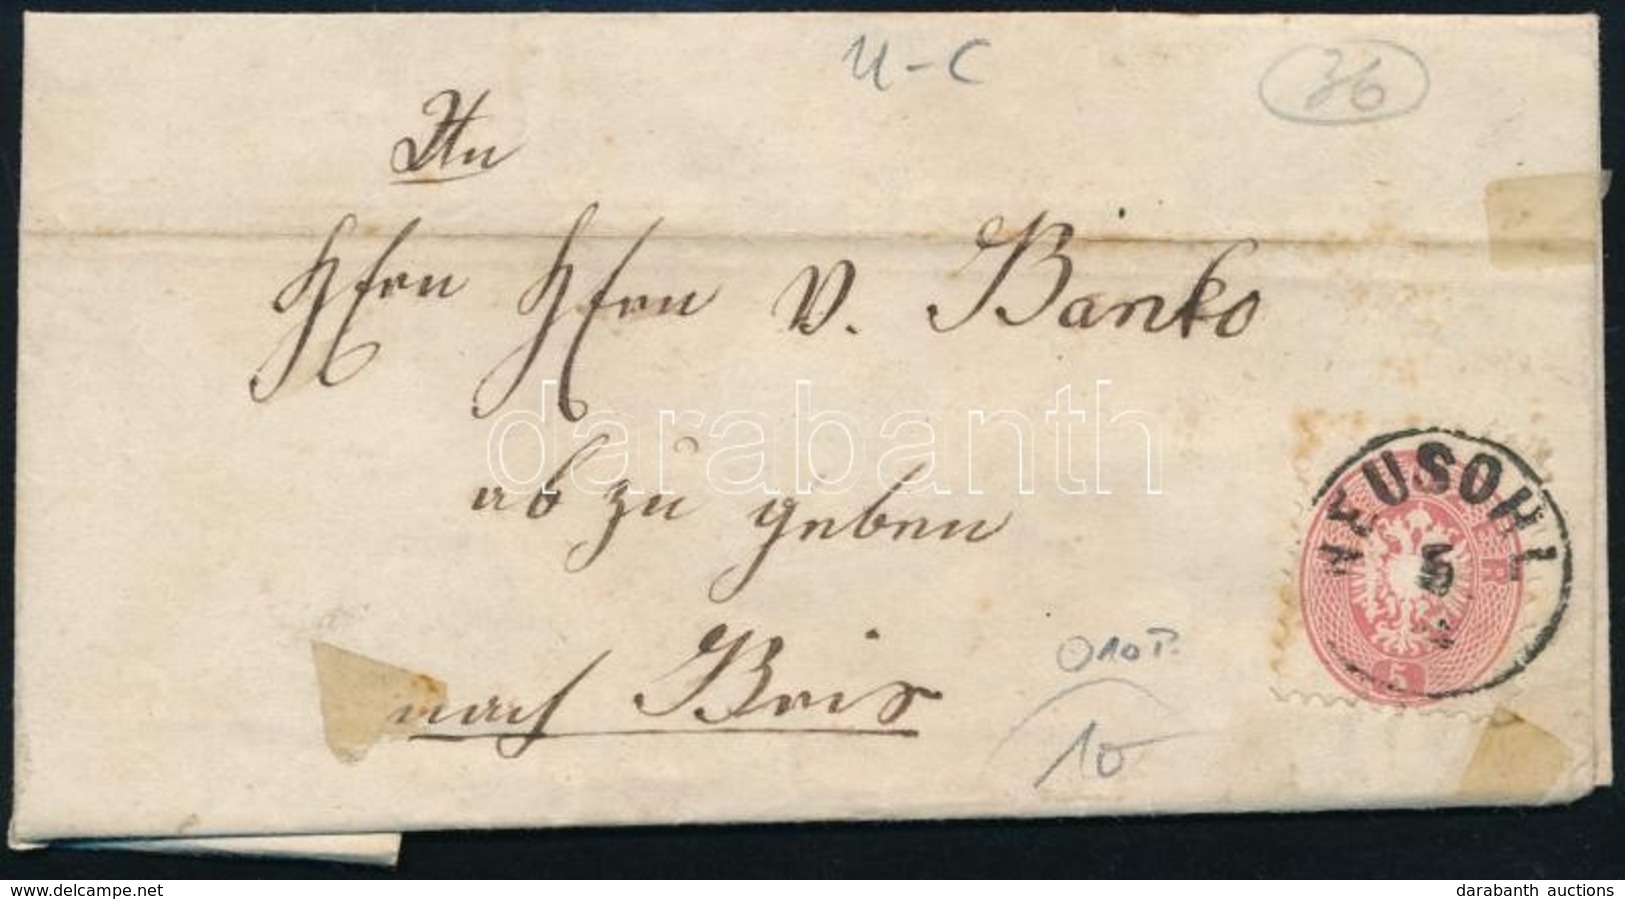 U-C
36
An
Herrn Herrn v. Banko
ab zu geben
nach Bris
010 P.
10
NEUSOHL
5
5
darabanth
www.delcampe.net
darabanth auctions